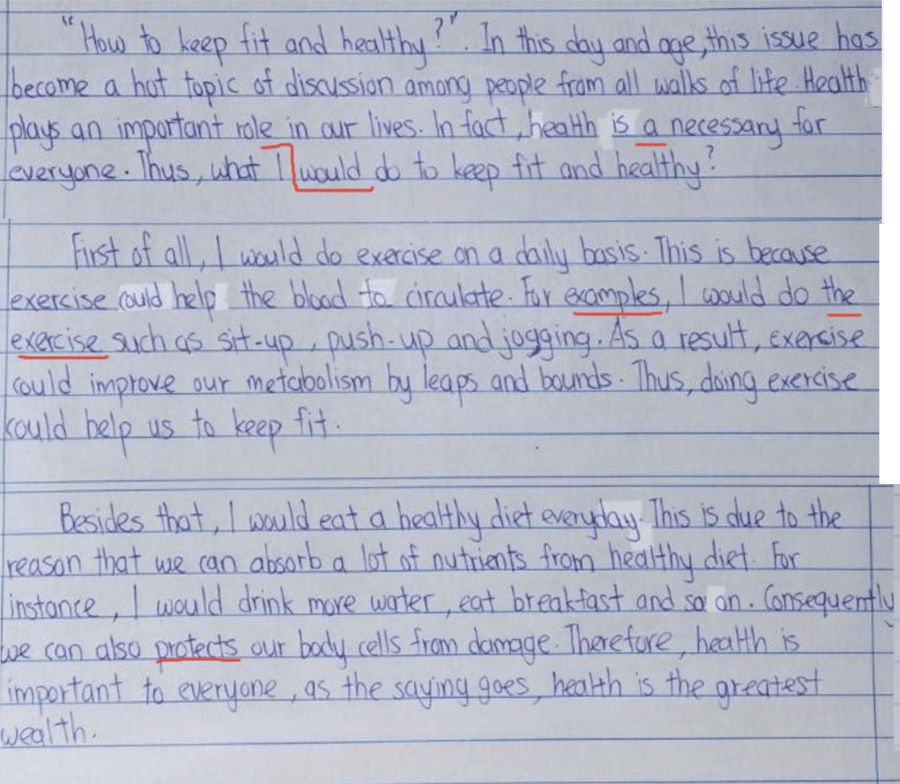 "How to keep fit and healthy?". In this day and age, this issue has
become a hot topic of discussion among people from all walks of life. Health
plays an important role in our lives. In fact, health is a necessary for
everyone. Thus, what I would do to keep fit and healthy?
First of all, I would do exercise on a daily basis. This is because
exercise could help the blood to circulate. For examples, I would do the
exercise such as sit-up, push-up and jogging. As a result, exercise
could improve our metabolism by leaps and bounds. Thus, doing exercise
could help us to keep fit.
Besides that, I would eat a healthy diet everyday. This is due to the
reason that we can absorb a lot of nutrients from healthy diet. For
instance, I would drink more water, eat breakfast and so on. Consequently
we can also protects our body cells from damage. Therefore, health is
important to everyone, as the saying goes, health is the greatest
wealth.